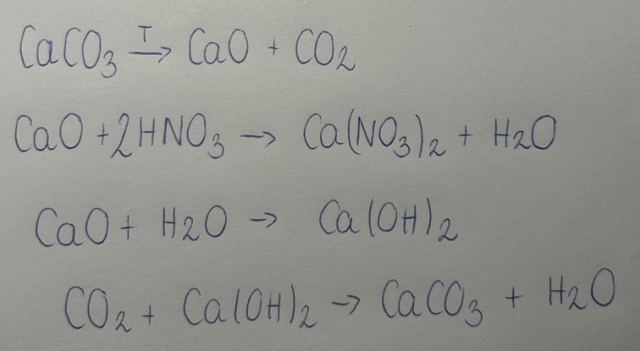 CaCO₃ →ᵀ CaO + CO₂
CaO + 2HNO₃ → Ca(NO₃)₂ + H₂O
CaO + H₂O → Ca(OH)₂
CO₂ + Ca(OH)₂ → CaCO₃ + H₂O